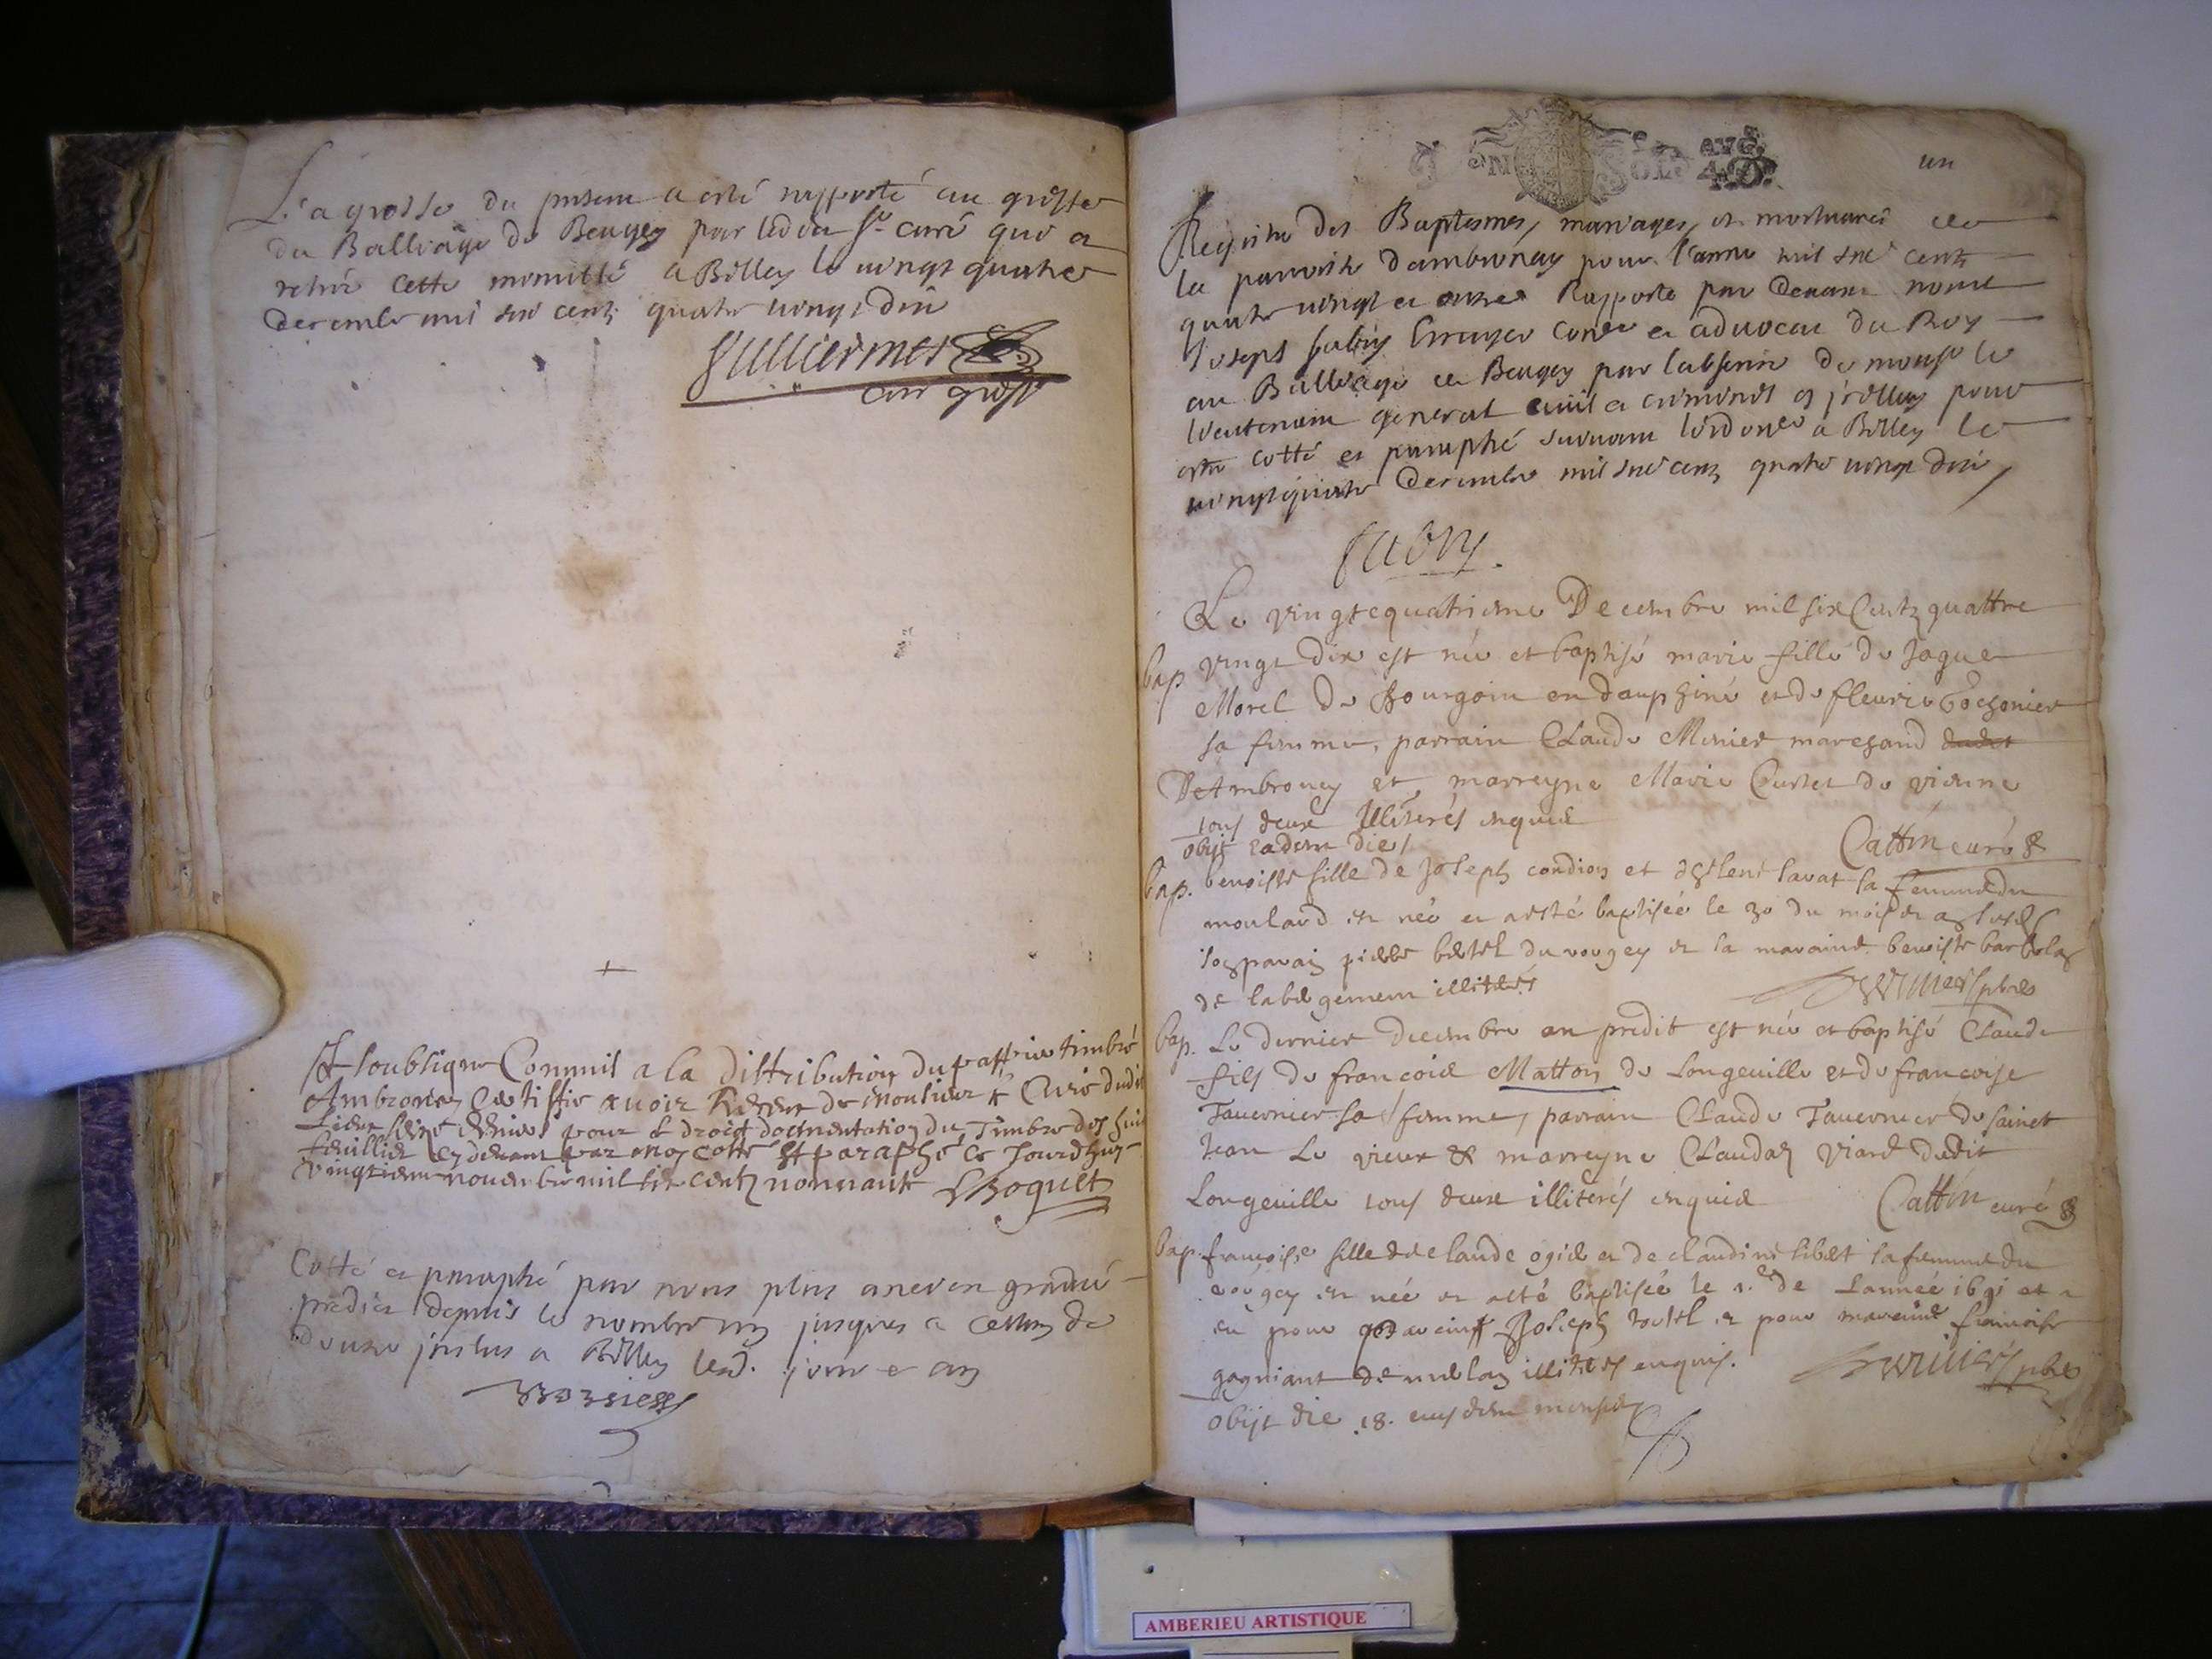 La grosse du present a esté rapporté au greffe
du Balliage de Beugey par ledit sr curé qui a
retiré cette minitté a Belley le vingt quatre
decembre mil six cents quatre vingt dix
Gulliermet
au greffe
+
Je soubsigne Commis a la distribution du pappier timbré
Ambronay Certiffie avoir de monsieur le Curé dudit
Lieux pour le droict du Timbre des huit
feuillies cy devant par moy cotté Et paraphé Ce Jourdhuy
vingtieme novembre mil six centz nonnante Boquet
Cotté et paraphé par nous plus ancien gradué
predict depuis le nombre un jusques a celluy de
douze jnclus a Belley led. jour et an
un
gen
AVG.
Registre des Baptesmes, mariages, et mortuaires de
la parroisse dambronay pour l'année mil six cents
quatre vingt et onze Rapporté par devant nous
Joseph fabry Escuyer Coner et advocat du Roy
au Balliage de Beugey par labsence de monsr le
lieutenant general civil et criminel pour
estre cotté et paraphé suivant lordonce a Belley le
vingt quatre decembre mil six cents quatre vingt dix
fabry.
Le vingtequatrieme Decembre mil six Centz quattre
bap vingt dix est née et baptisé marie fille de Jaque
Morel de Bourgoin en dauphiné et de fleurie Cochonier
sa femme, parrain Claude Monier marchand dudit
DeAmbronay et marreyne Marie Curtet de vienne
tous deux Illiterés enquis
obijt eadem die Cattin curé
bap. benoiste fille de Joseph condion et lavat sa femme du
moulard est née et a esté baptisée le 30 du mois et a
son parain pierre du vougey et la maraine benoiste
de labergement illiterés
bap. Le dernier decembre an predit est née et baptisé Claude
fils de francois Matton de Longeville et de francoise
Tavernier sa femme, parrain Claude Tavernier de sainct
Jean Le vieux & marreyne Claudaz Viard dudit
Longeville tous deux illiterés enquis Cattin curé
bap. francoise fille de claude ogier et de claudine sibet sa femme du
vougey est née et a esté baptisée le 1.er de Lannée 1691 et a
eu pour parain Joseph et pour maraine francoise
gagniant de illiteres enquis.
obijt die 18. eiusdem mensis
AMBERIEU ARTISTIQUE